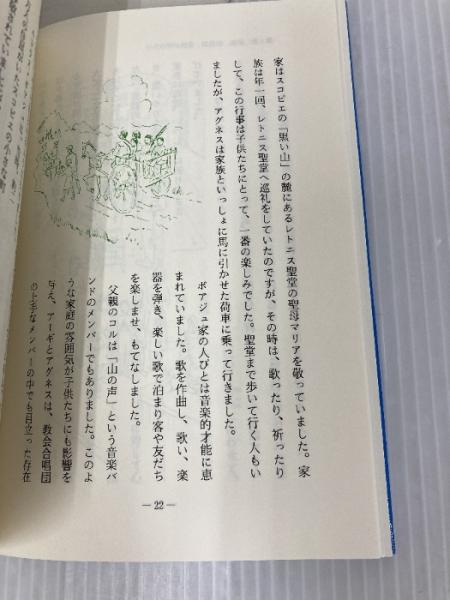 家はスコピエの「黒い山」の麓にあるレトニス聖堂の聖母マリアを敬っていました。家
族は年一回、レトニス聖堂へ巡礼をしていたのですが、その時は、歌ったり、祈ったり
して、この行事は子供たちにとって、一番の楽しみでした。聖堂まで歩いて行く人もい
ましたが、アグネスは家族といっしょに馬に引かせた荷車に乗って行きました。
ボアジュ家の人びとは音楽的才能に恵
まれていました。歌を作曲し、歌い、楽
器を弾き、楽しい歌で泊まり客や友だち
を楽しませ、もてなしました。
父親のコルは「山の声」という音楽バ
ンドのメンバーでもありました。このよ
うな家庭の雰囲気が子供たちにも影響を
与え、アーギとアグネスは、教会合唱団
のメンバーの中でも目立った存在
— 22 —